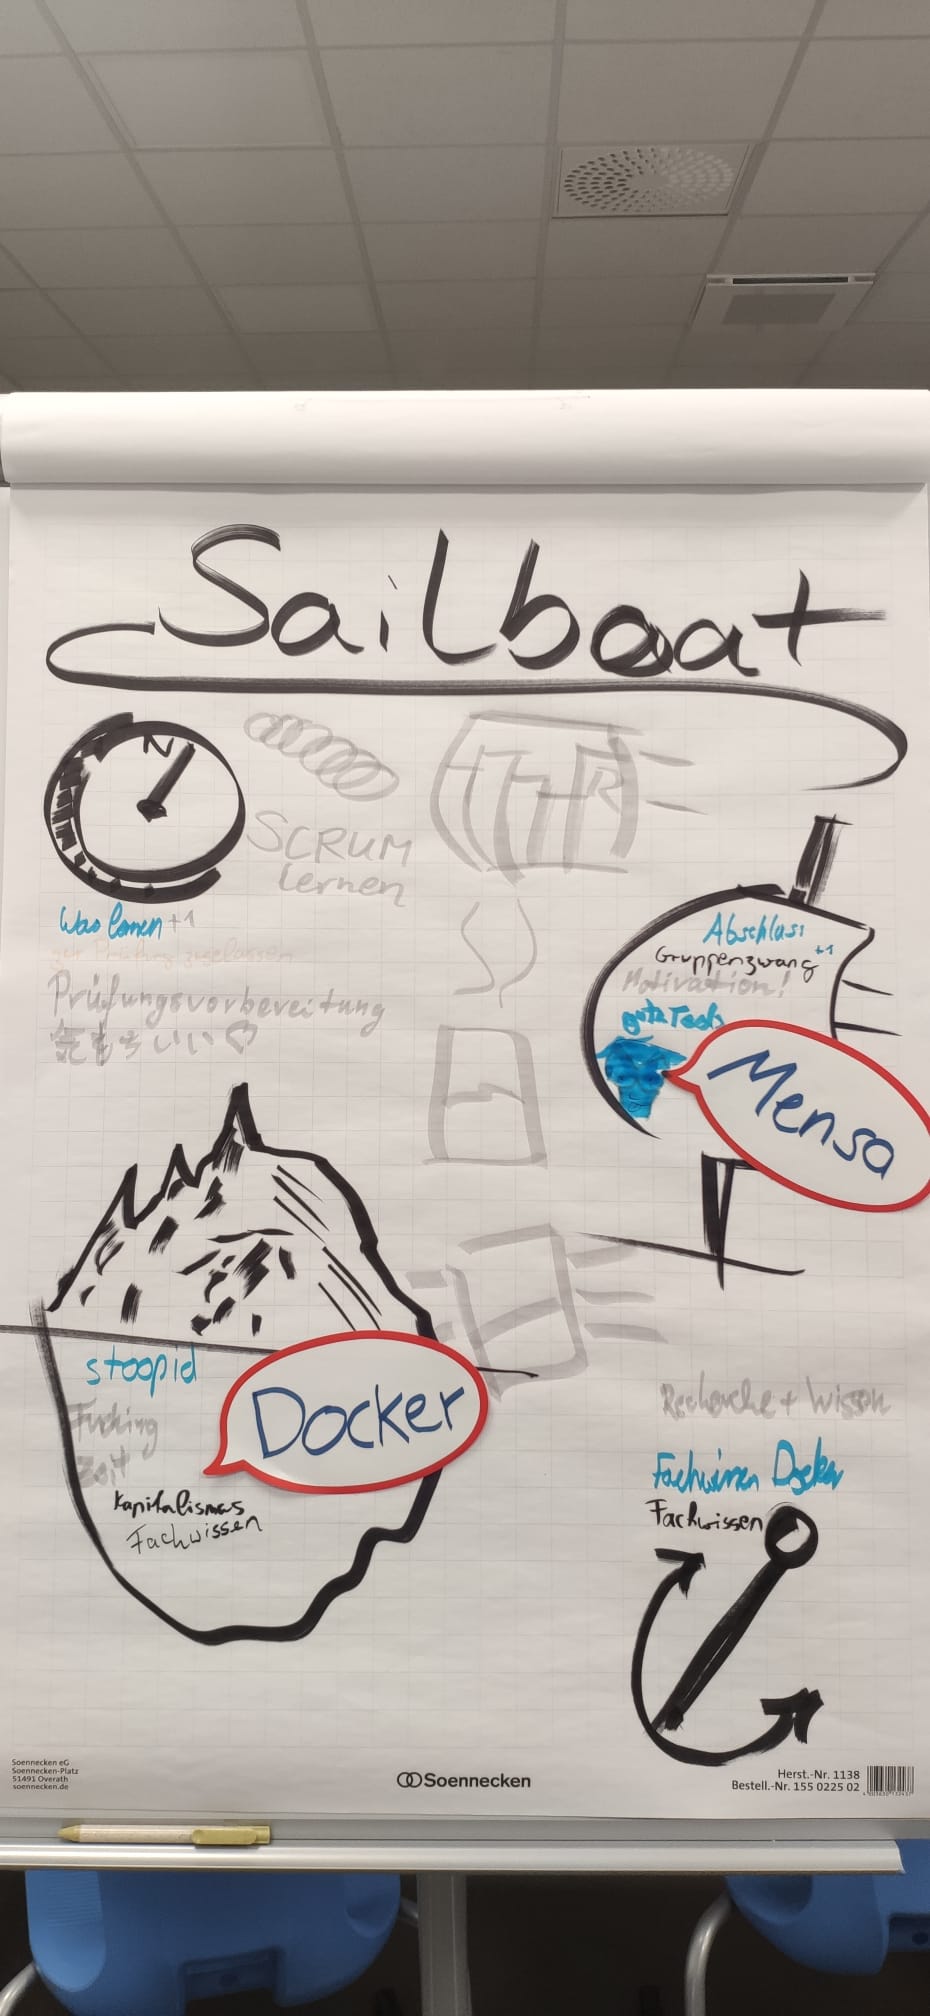 Sailboat
N
SCRUM
lernen
Was lernen +1
zur Prüfung zugelassen
Prüfungsvorbereitung
気もちいい♡
Abschluss
Gruppenzwang +1
Motivation!
gute Tests
Mensa
stoopid
Fucking
Zeit
Docker
Kapitalismus
Fachwissen
Recherche + Wissen
Fachwissen Docker
Fachwissen
Soennecken eG
Soennecken-Platz
51491 Overath
soennecken.de
Soennecken
Herst.-Nr. 1138
Bestell.-Nr. 155 0225 02